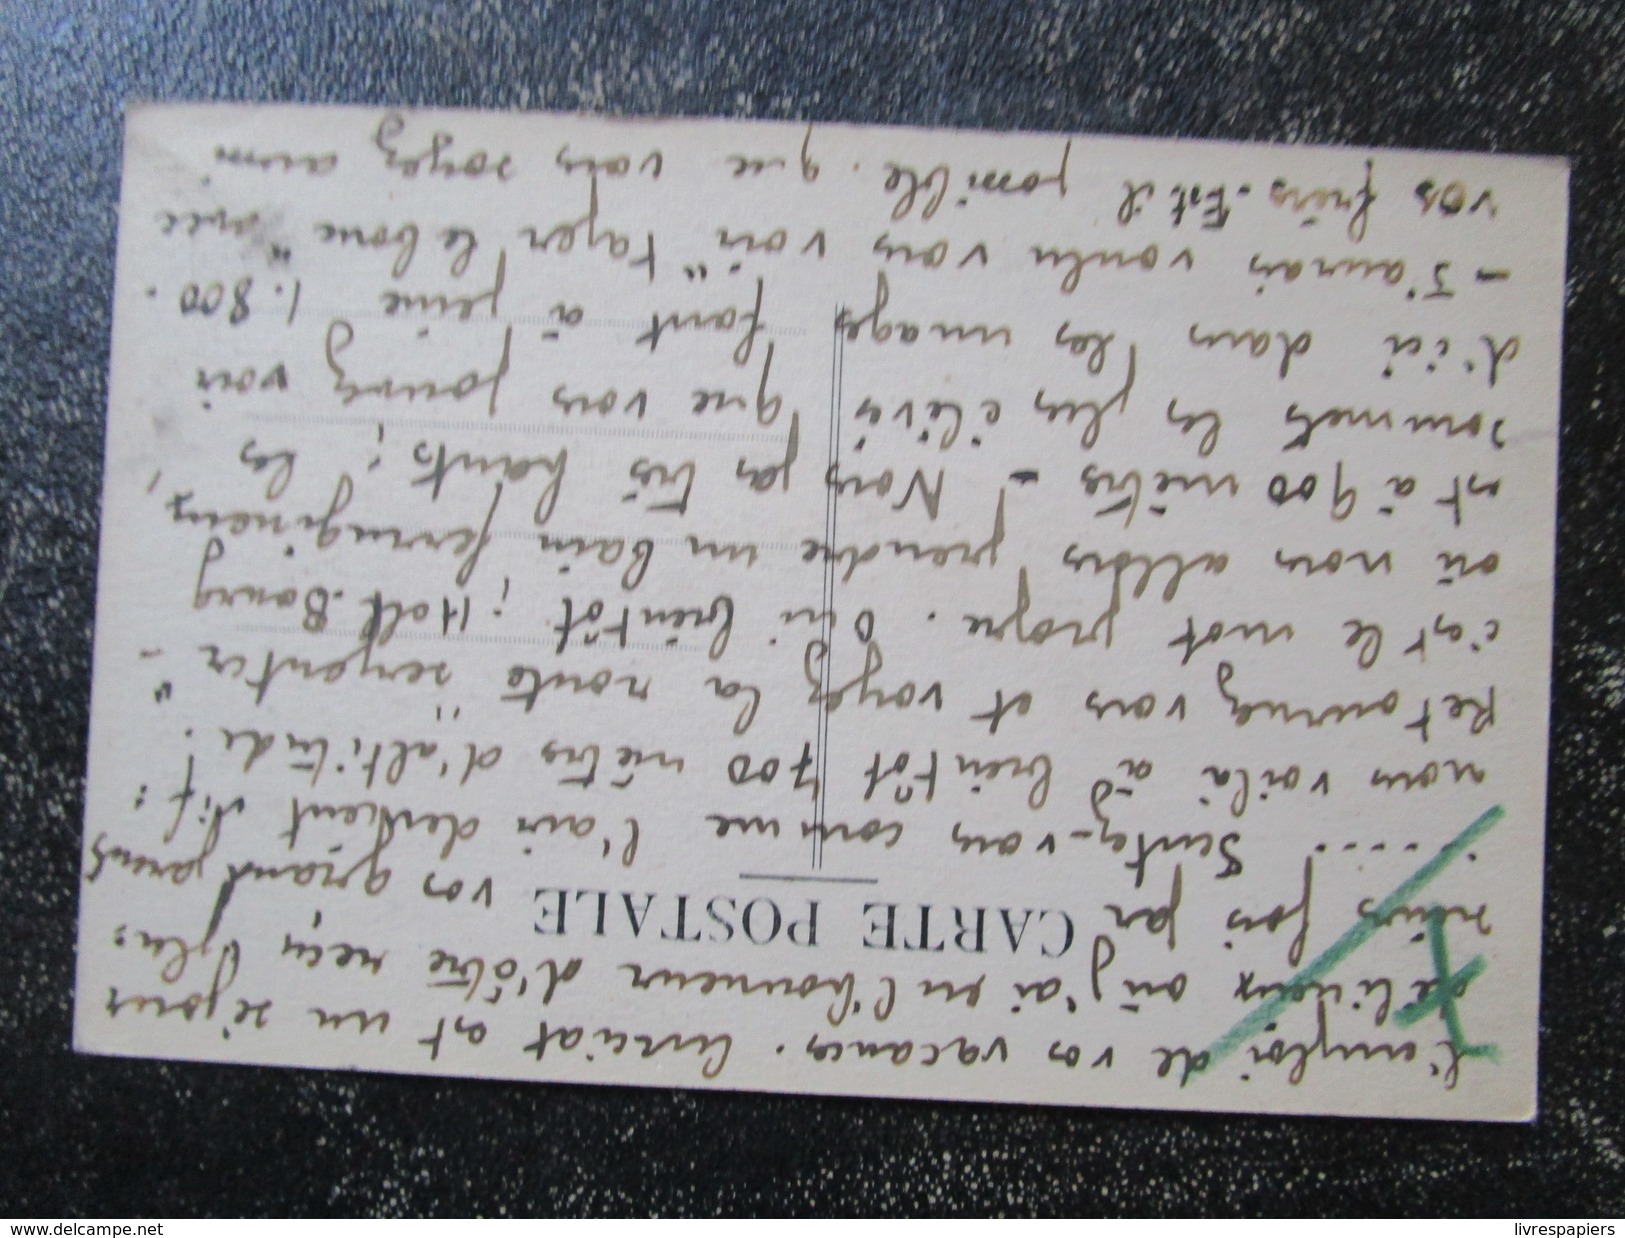 l'emploi de vos vacances. Curciat est un séjour
délicieux où j'ai eu l'honneur d'être reçu plu-
CARTE POSTALE
sieurs fois par vos grand parents
..... Sentez-vous comme l'air devient vif:
nous voilà à bientôt 700 mètres d'altitude!
Retournez vous et voyez la route "serpenter" -
c'est le mot propre. Oui bientôt; Holf-Bourg
où nous allons prendre un bain ferrugineux,
est à 900 mètres - Non pas très hauts; les
sommets les plus élevés que vous pouvez voir
d'ici dans les nuages font à peine 1.800.
- J'aurais voulu vous voir "Tayer le bouc" avec
vos frères. Est il possible que vous soyez aussi
www.delcampe.net
livrespapiers